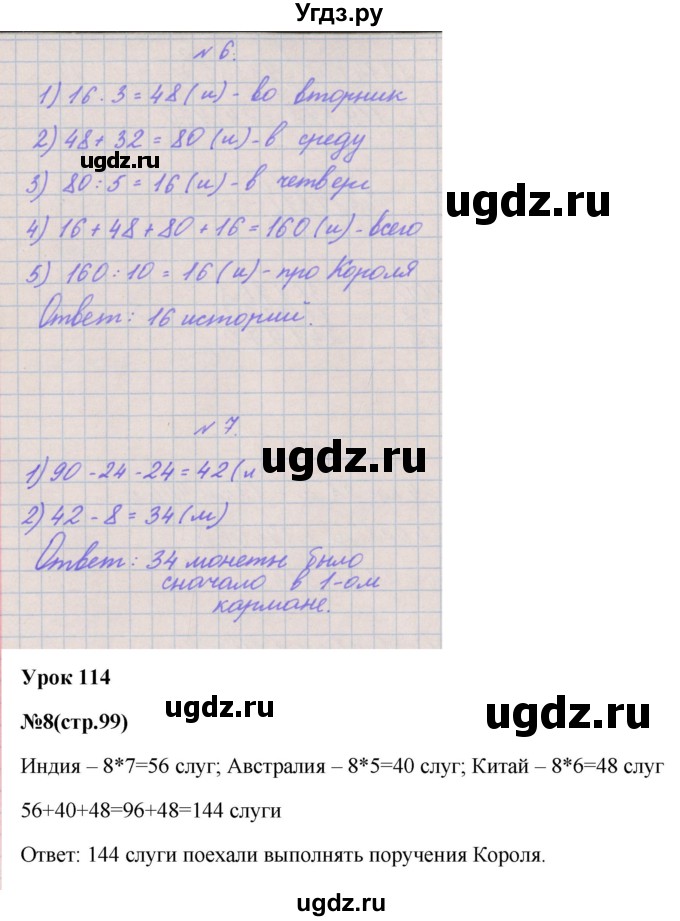 Угдз.ру
№ 6.
1) 16 · 3 = 48 (и) - во вторник
2) 48 + 32 = 80 (и) - в среду
ugdz.ru
3) 80 : 5 = 16 (и) - в четверг
ugdz.ru
4) 16 + 48 + 80 + 16 = 160 (и) - всего
5) 160 : 10 = 16 (и) - про Короля
Ответ: 16 историй.
№ 7.
ugdz.ru
1) 90 - 24 - 24 = 42 (м
2) 42 - 8 = 34 (м)
Ответ: 34 монеты было
сначало в 1-ом
кармане.
Урок 114
ugdz.ru
ugdz.ru
№8(стр.99)
Индия – 8*7=56 слуг; Австралия – 8*5=40 слуг; Китай – 8*6=48 слуг
56+40+48=96+48=144 слуги
Ответ: 144 слуги поехали выполнять поручения Короля.
ugdz.ru